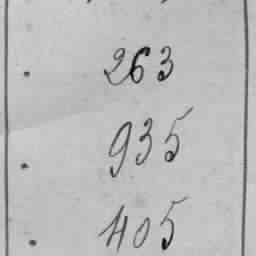 . 263
. 935
. 405